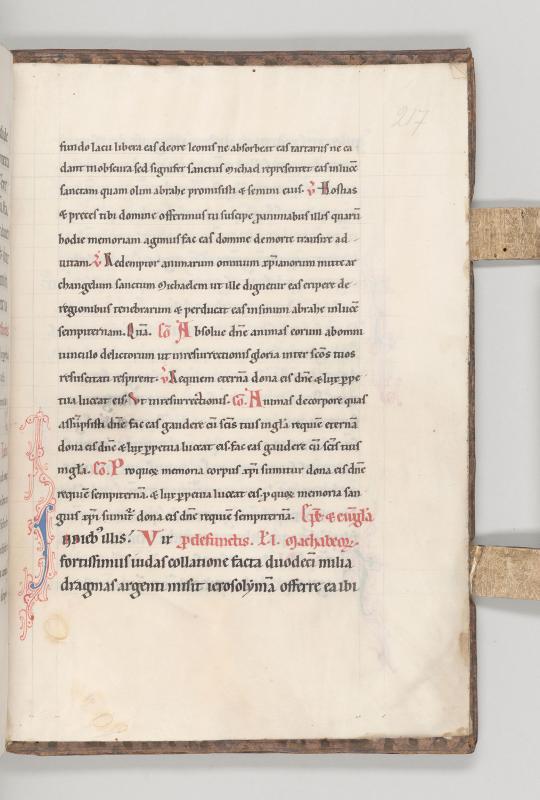 217
fundo lacu libera eas deore leonis ne absorbeat eas tartarus ne ca
dant in obscura sed signifer sanctus michael representet eas in lucē
sanctam quam olim abrahe promisisti & semini eius. v̄ Hostias
& preces tibi domine offerimus tu suscipe ꝓ animabus illis quarū
hodie memoriam agimus fac eas domine demorte transire ad
uitam. v̄ Redemptor animarum omnium xp̄ianorum mitte ar
changelum sanctum michaelem ut ille dignetur eas eripere de
regionibus tenebrarum & perducat eas insinum abrahe inlucē
sempiternam. Qua. Co Absolue dn̄e animas eorum ab omni
uinculo delictorum ut inresurrectionis gloria inter scōs tuos
resuscitati respirent. v̄ Requiem eternā dona eis dn̄e & lux ꝑpe
tua luceat eis. Vt inresurrectionis. Co. Animas decorpore quas
assūpsisti dn̄e fac eas gaudere cū scīs tuis inglā requiē eternā
dona eis dn̄e & lux ꝑpetua luceat eis. fac eas gaudere cū scīs tuis
inglā. Co. Pro quoꝝ memoria corpus xp̄i sumitur dona eis dn̄e
requiē sempiternā. & lux ꝑpetua luceat eis. ꝓ quoꝝ memoria san
guis xp̄i sumit᷑ dona eis dn̄e requiē sempiternā.
In dieb᷒ illis. Vir ꝓ defunctis. machabeoꝝ.
fortissimus iudas collatione facta duodecī milia
dragmas argenti misit ierosolymā offerre ea ibi